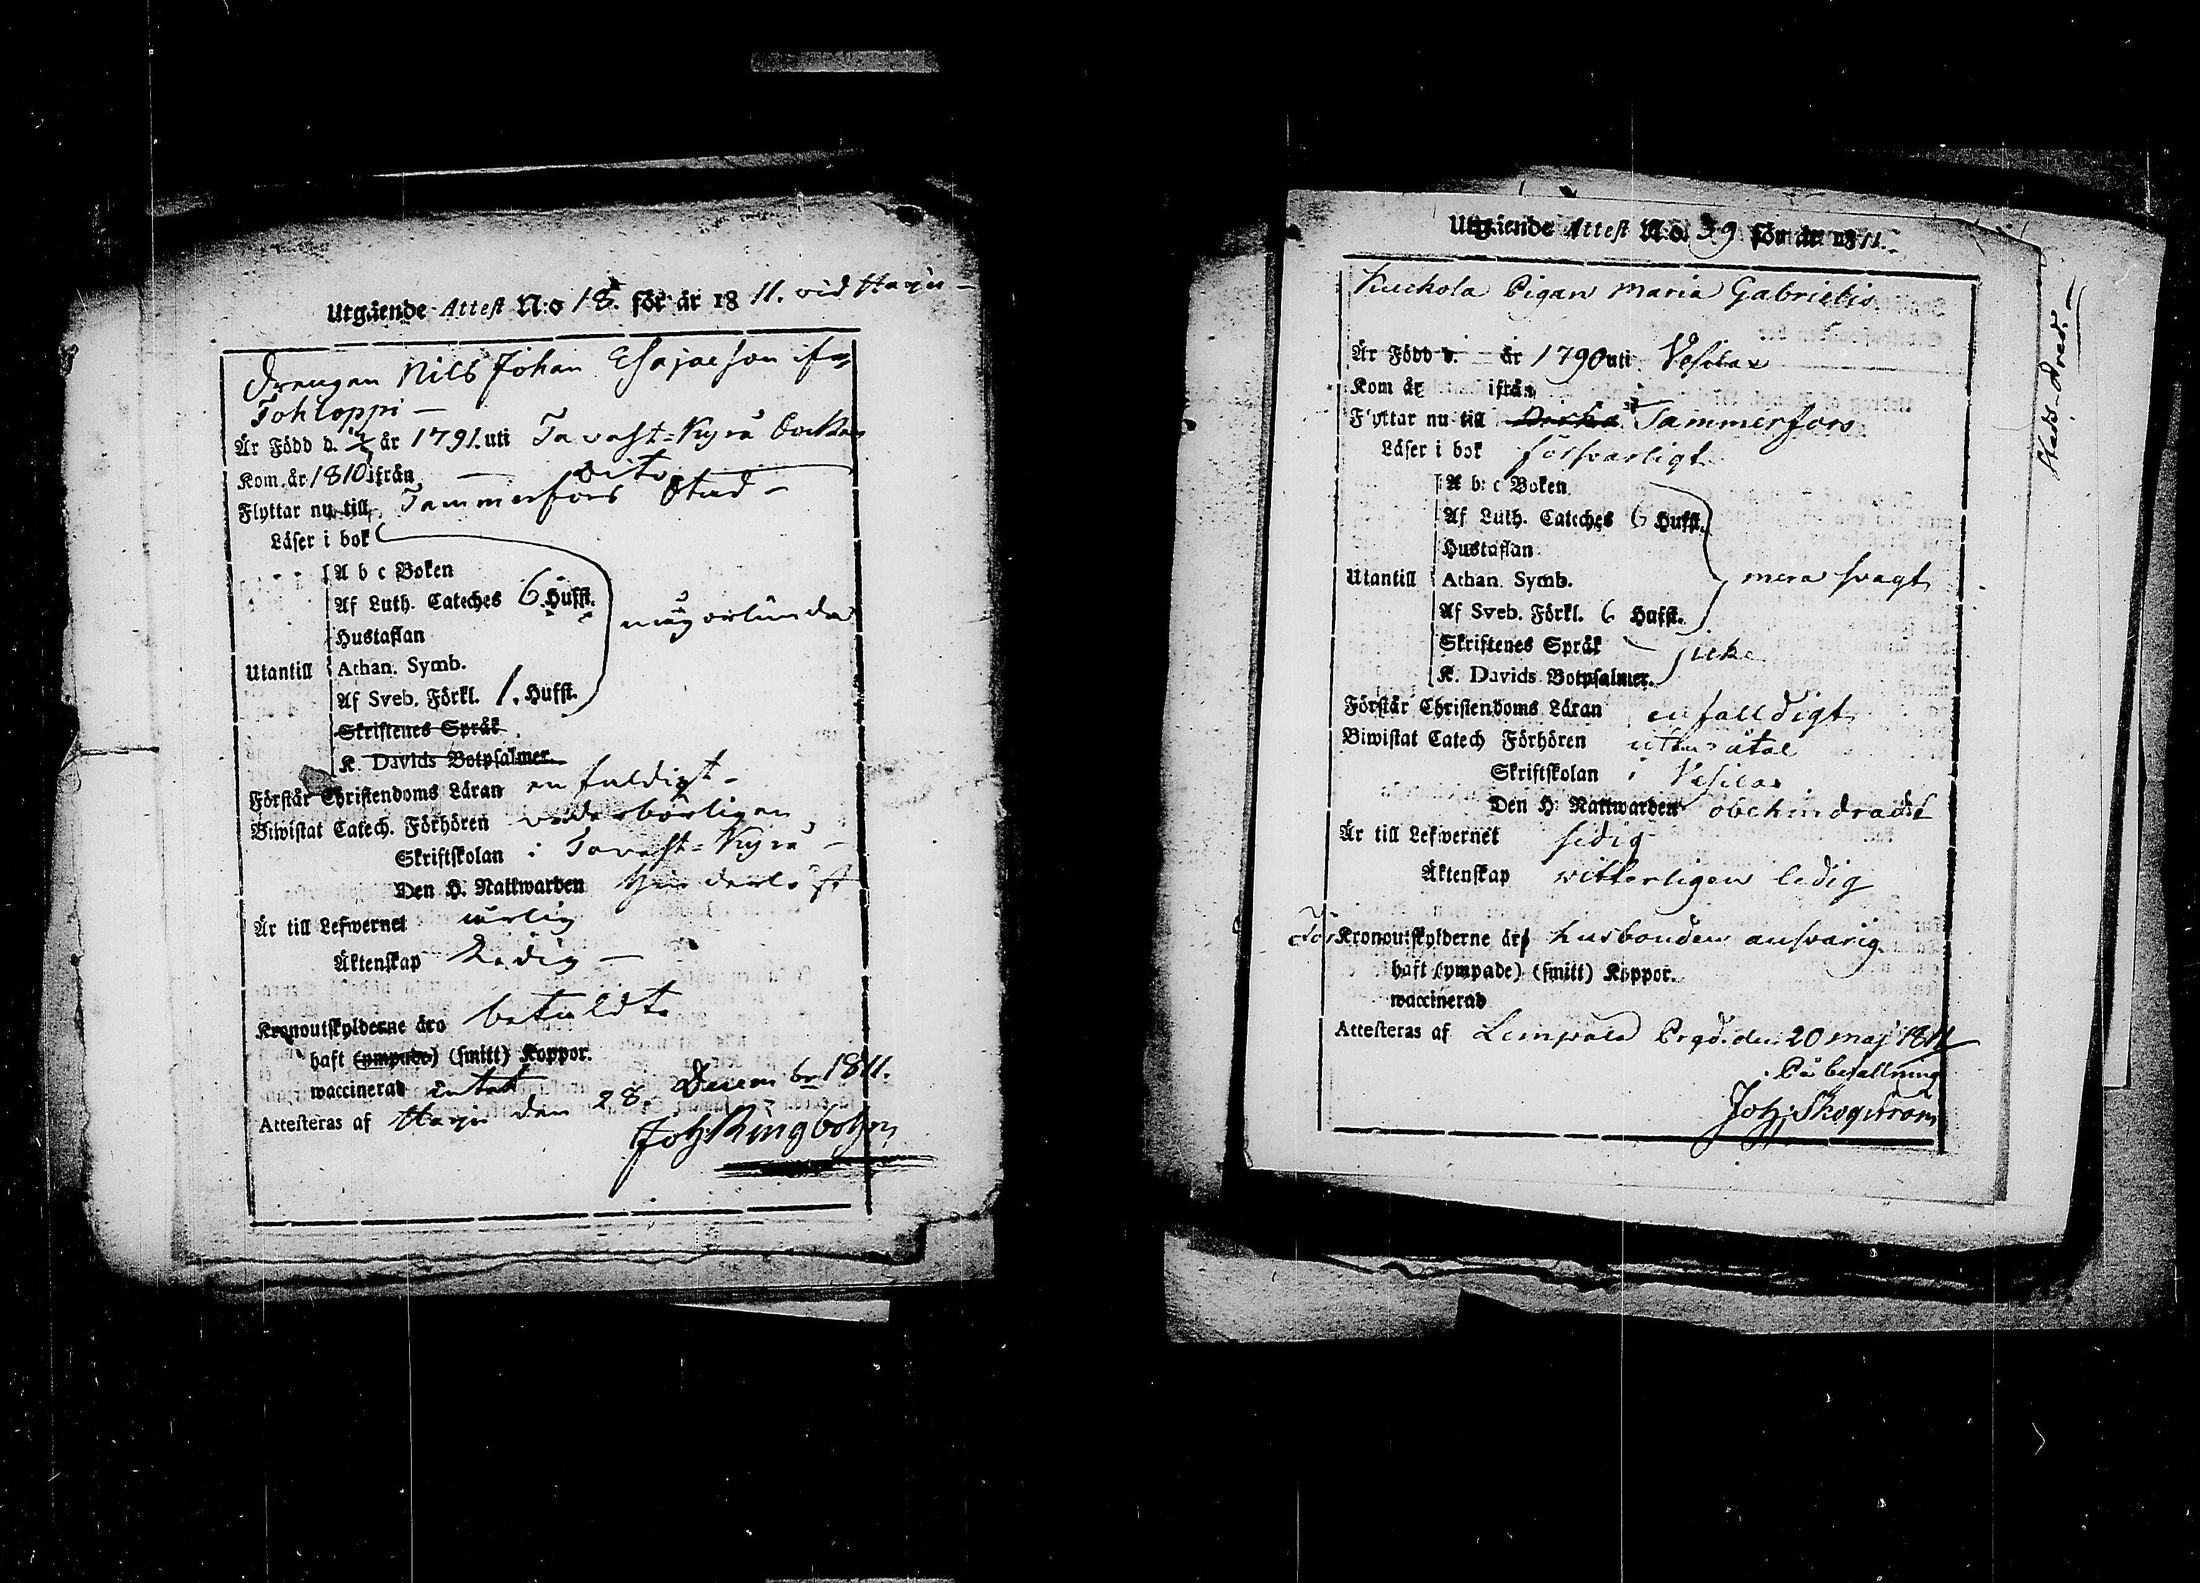 Utgående Attest N:o 18. för år 1811. vid Harju
Drengen Nils Johan Esajaeson ifrån
Tohloppi —
Är Född d. år 1791. uti Tavast-Kyrö Socken
Kom år 1810 ifrån — dito
Flyttar nu till Tammerfors Stad —
Läser i bok
A b c Boken
Af Luth. Cateches 6 Hufst.
någorlunda
Hustaflan
Utantill Athan. Symb.
Af Sveb. Förkl. 1. Hufst.
Skriftenes Språk
K. Davids Botpsalmer.
Förstår Christendoms Läran enfaldigt —
Biwistat Catech. Förhören vederbörligen
Skriftskolan i Tavast-Kyrö —
Den H. Nattwarden hinderlöst
Är till Lefwernet ärlig
Äktenskap Ledig —
Kronoutskylderne äro betaldt
haft (ympade) (smitt) Koppor.
waccinerad intet
Attesteras af Harju den 28. Decembr 1811.
Joh Ringbohm
Utgående Attest N:o. 39 för år 1811.
Kuckola Pigan Maria Gabrielis
Är Född d. år 1790 uti Vesilax
Kom år ifrån
Flyttar nu till Tammerfors
Läser i bok försvarligt
A b c Boken
Af Luth. Cateches 6 Hufst.
Hustaflan
Utantill Athan. Symb. mera svagt
Af Sveb. Förkl. 6 Hufst.
Skriftenes Språk icke
K. Davids Botpsalmer.
Förstår Christendoms Läran enfalldigt
Biwistat Catech Förhören utan åtal
Skriftskolan i Vesilax
Den H. Nattwarden obehindradt
Är till Lefwernet sedig
Äktenskap witterligen ledig
För Kronoutskylderne är husbonden ansvarig
haft (ympade) (smitt) Koppor.
waccinerad
Attesteras af Lempälä Prgd. den 20 maj 1811
På befallning
Joh: Skogström